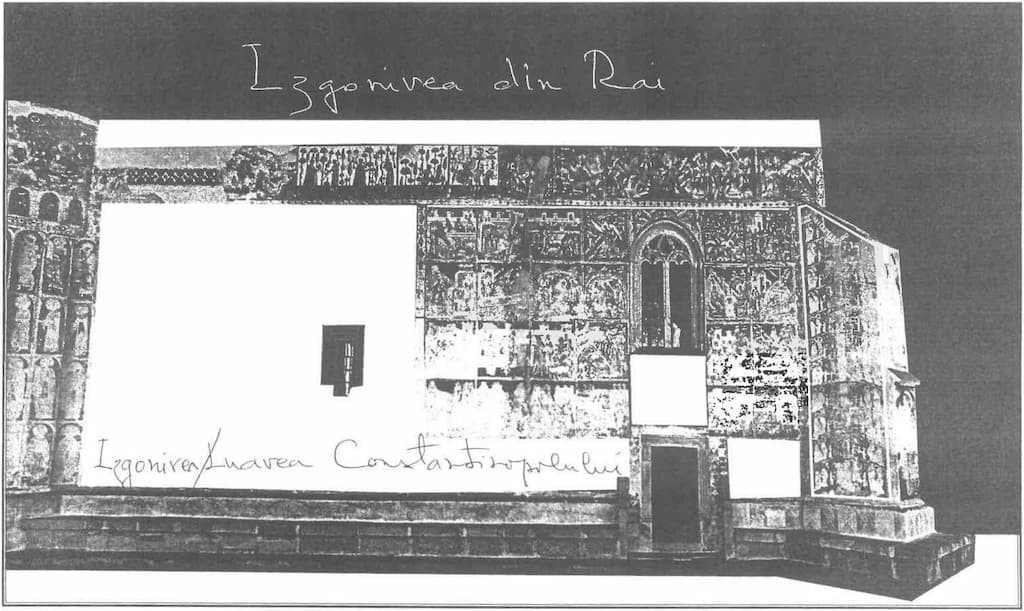 Izgonirea din Rai
Izgonirea/Luarea Constantinopolului